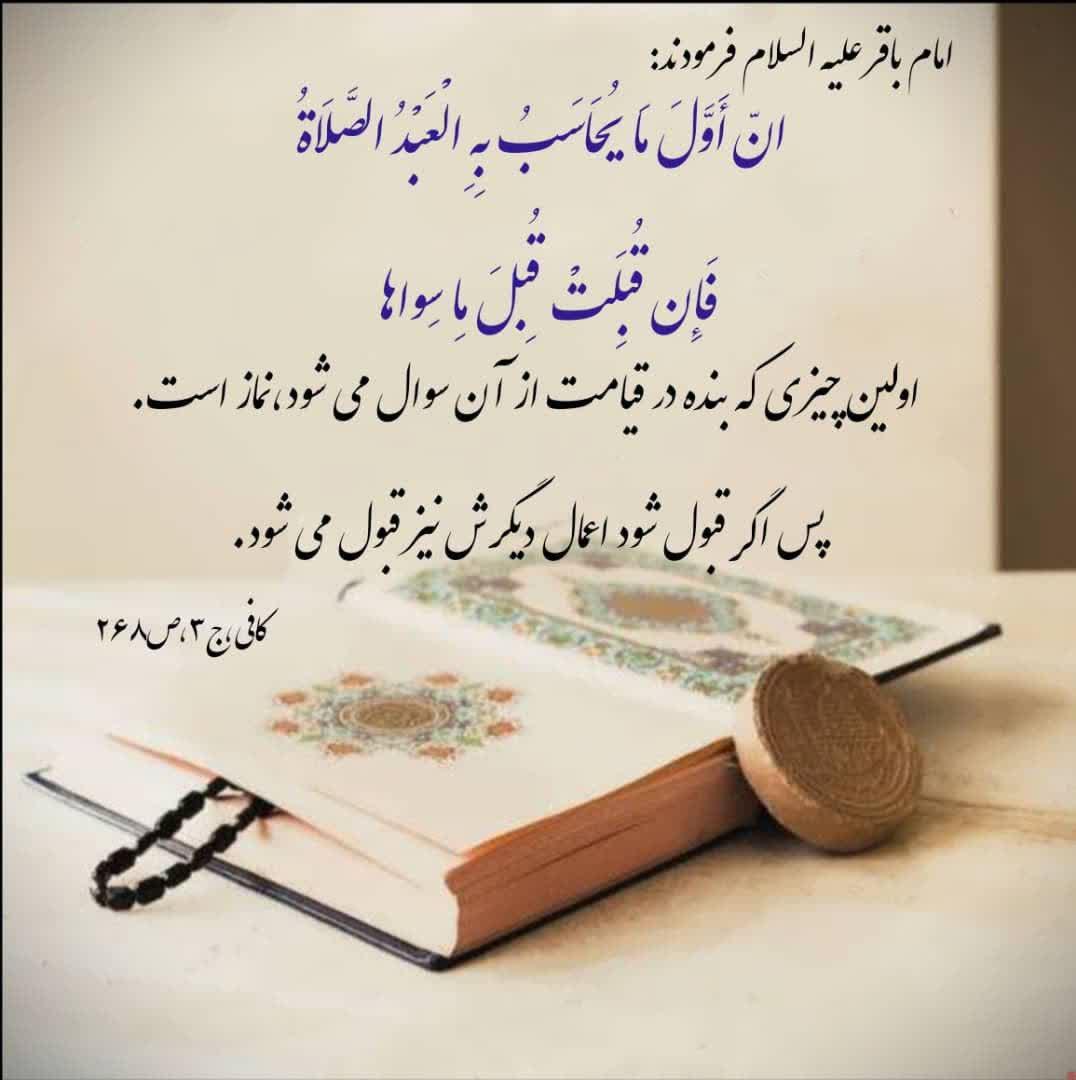 امام باقر علیه السلام فرمودند:
انّ أَوَّلَ مَا یُحَاسَبُ بِهِ الْعَبْدُ الصَّلَاةُ
فَإِن قُبِلَتْ قُبِلَ مِا سِواها
اولین چیزی که بنده در قیامت از آن سوال می شود، نماز است.
پس اگر قبول شود اعمال دیگرش نیز قبول می شود.
کافی، ج ۳، ص۲۶۸